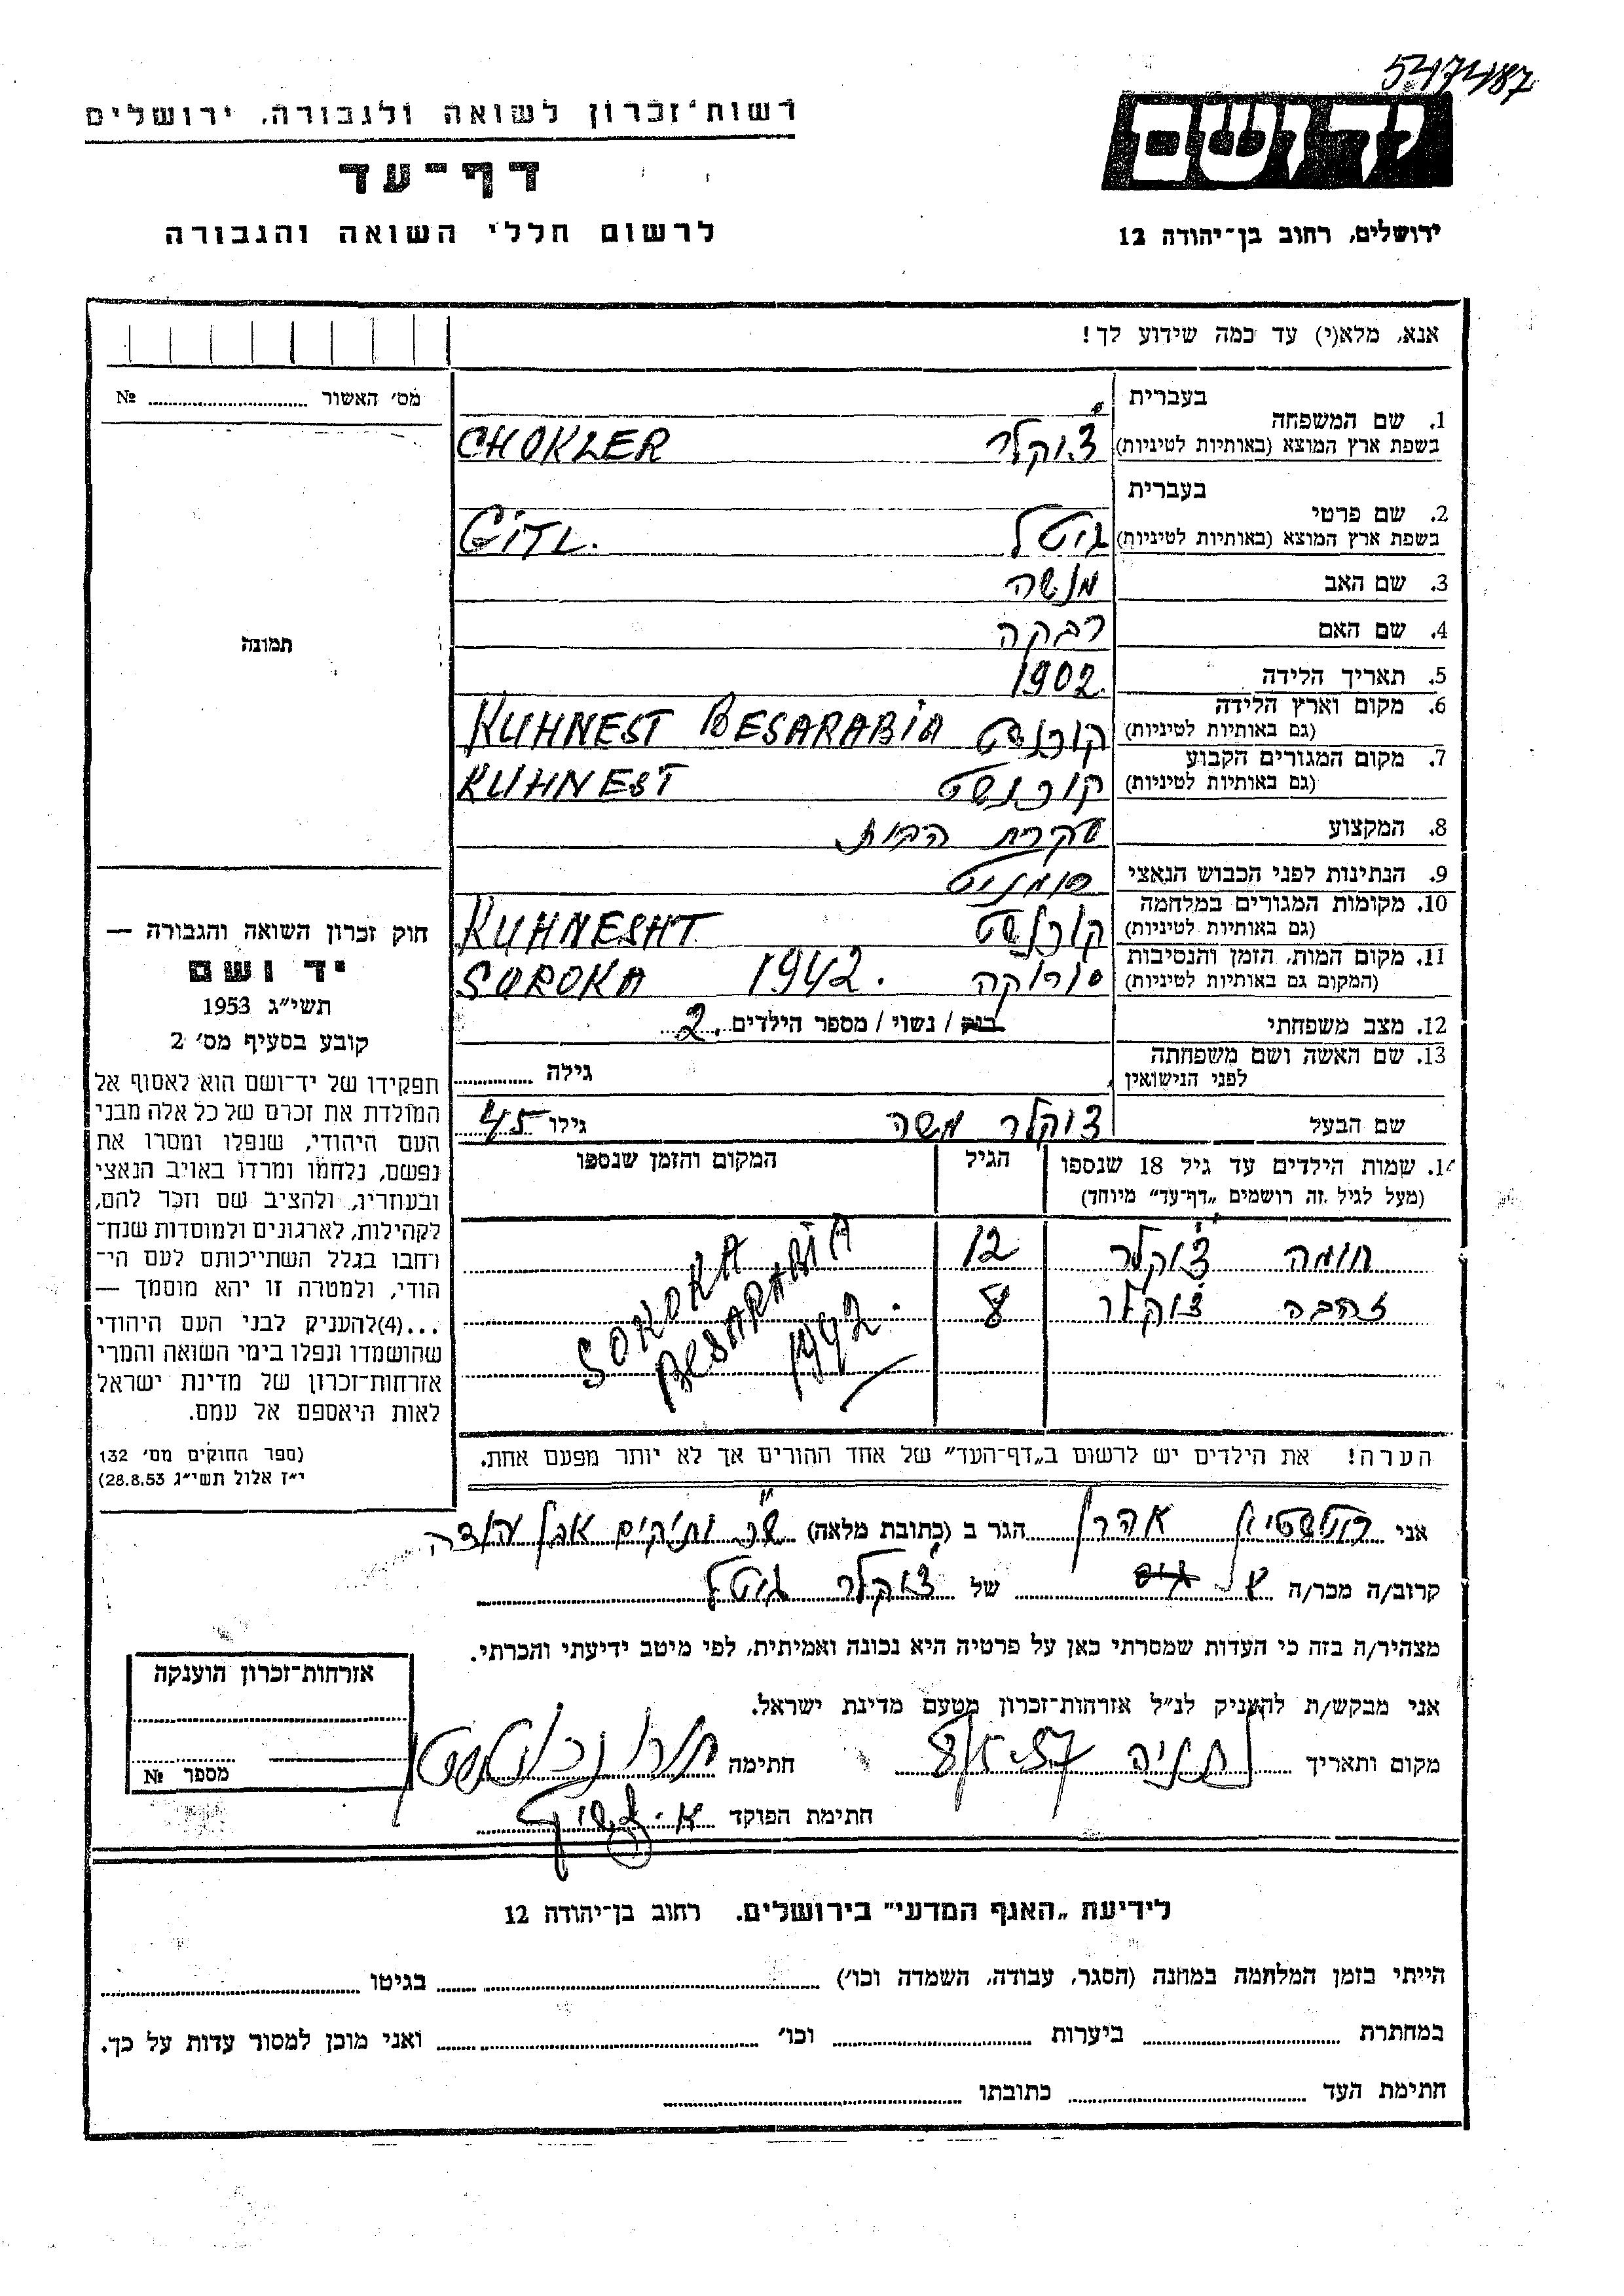 5474187
רשות־זכרון לשואה ולגבורה, ירושלים
דף־עד
לרשום חללי השואה והגבורה
יד ושם
ירושלים, רחוב בן־יהודה 12
אנא, מלא(י) עד כמה שידוע לך!
מס׳ האשור № 
1. שם המשפחה בעברית
בשפת ארץ המוצא (באותיות לטיניות) צ׳וקלר CHOKLER
2. שם פרטי בעברית
בשפת ארץ המוצא (באותיות לטיניות) גיטל GITL.
3. שם האב מנשה
4. שם האם רבקה
5. תאריך הלידה 1902.
6. מקום וארץ הלידה
(גם באותיות לטיניות) קוכנשט KUHNEST BESARABIA
7. מקום המגורים הקבוע
(גם באותיות לטיניות) קוכנשט KUHNEST
8. המקצוע עקרת הבית
9. הנתינות לפני הכבוש הנאצי רומנית
10. מקומות המגורים במלחמה
(גם באותיות לטיניות) קוכנשט KUHNESHT
11. מקום המות, הזמן והנסיבות
(המקום גם באותיות לטיניות) סורוקה 1942. SOROKA
12. מצב משפחתי רוק / נשוי / מספר הילדים 2.
13. שם האשה ושם משפחתה
לפני הנישואין גילה
שם הבעל צוקלר משה גילו 45
14. שמות הילדים עד גיל 18 שנספו הגיל המקום והזמן שנספו
(מעל לגיל זה רושמים „דף־עד״ מיוחד)
חומה צ׳וקלר 12
זהבה צ׳וקלר 8
SOROKA
BESARABIA
1942.
הערה! את הילדים יש לרשום ב„דף־העד״ של אחד ההורים אך לא יותר מפעם אחת.
תמונה
חוק זכרון השואה והגבורה —
יד ושם
תשי״ג 1953
קובע בסעיף מס׳ 2
תפקידו של יד־ושם הוא לאסוף אל
המולדת את זכרם של כל אלה מבני
העם היהודי, שנפלו ומסרו את
נפשם, נלחמו ומרדו באויב הנאצי
ובעוזריו, ולהציב שם וזכר להם,
לקהילות, לארגונים ולמוסדות שנח־
רחבו בגלל השתייכותם לעם הי־
הודי, ולמטרה זו יהא מוסמך —
...(4)להעניק לבני העם היהודי
שהושמדו ונפלו בימי השואה והמרי
אזרחות־זכרון של מדינת ישראל
לאות היאספם אל עמם.
(ספר החוקים מס׳ 132
י״ז אלול תשי״ג 28.8.53)
אני רוטשטיין אהרן הגר ב (כתובת מלאה) שכ׳ ותיקים אבן יהודה
קרוב/ה מכר/ה של צ׳וקלר גיטל
מצהיר/ה בזה כי העדות שמסרתי כאן על פרטיה היא נכונה ואמיתית, לפי מיטב ידיעתי והכרתי.
אני מבקש/ת להעניק לנ״ל אזרחות־זכרון מטעם מדינת ישראל.
מקום ותאריך נתניה חתימה
חתימת הפוקד
אזרחות־זכרון הוענקה
מספר №
לידיעת „האגף המדעי״ בירושלים. רחוב בן־יהודה 12
הייתי בזמן המלחמה במחנה (הסגר, עבודה, השמדה וכו׳) בגיטו
במחתרת ביערות וכו׳ ואני מוכן למסור עדות על כך.
חתימת העד כתובתו